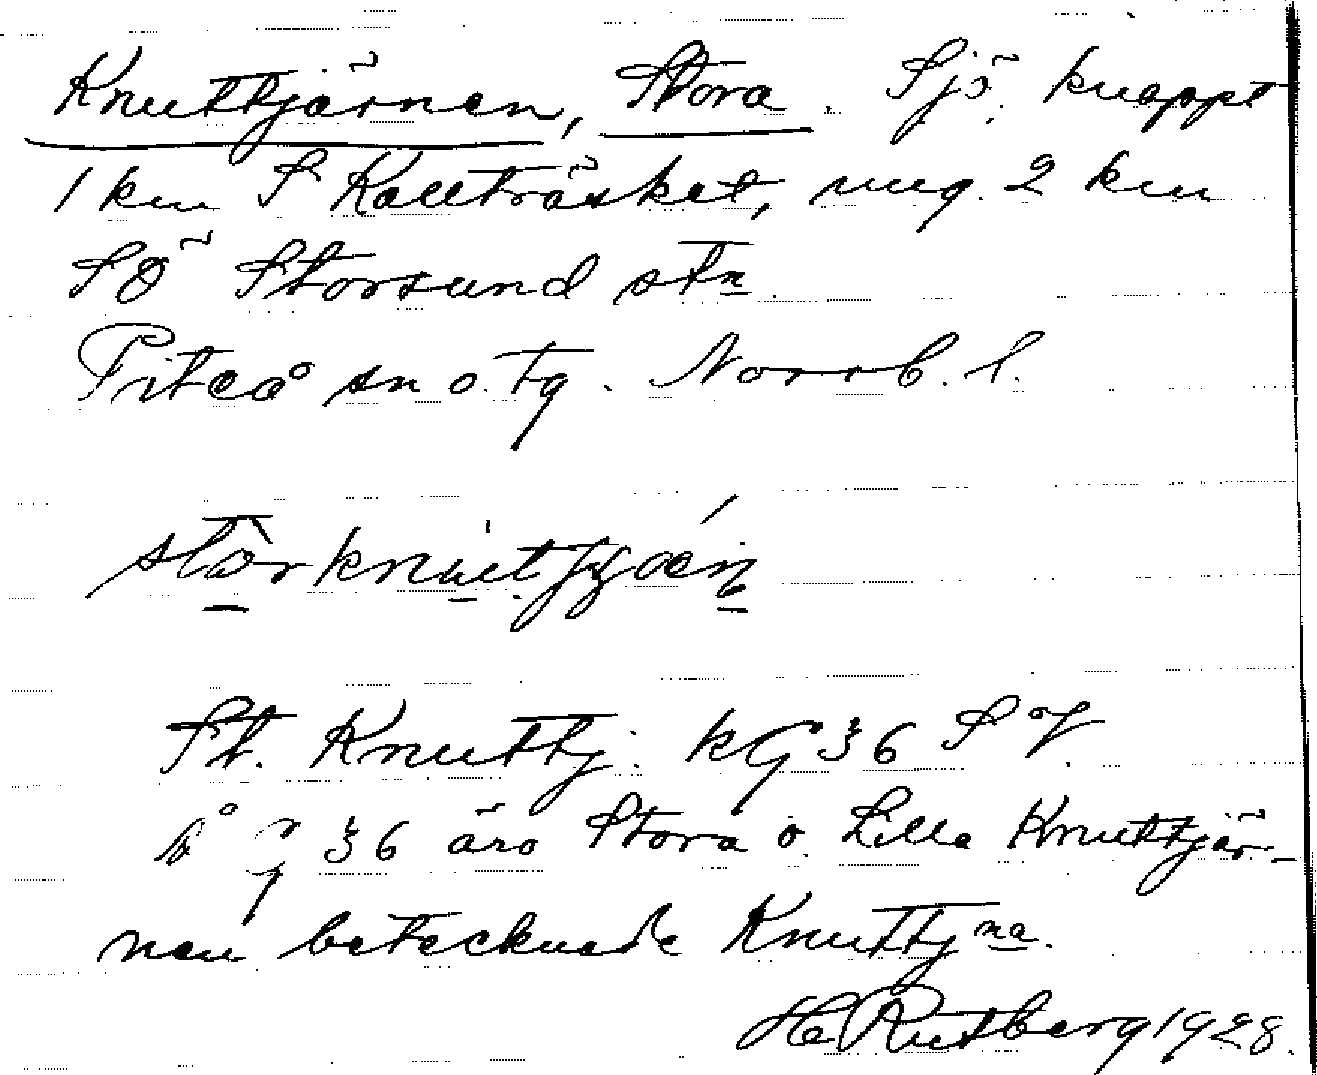 Knuttjärnen, Stora. Sjö, knappt
1 km S Kallträsket, ung. 2 km
SÖ Storsund stn
Piteå sn o. tg. Norrb. l.
St. Knuttj. kG 36 SV.
på G 36 äro Stora o. Lilla Knuttjär-
nen betecknade Knuttjna.
H Rutberg 1928.